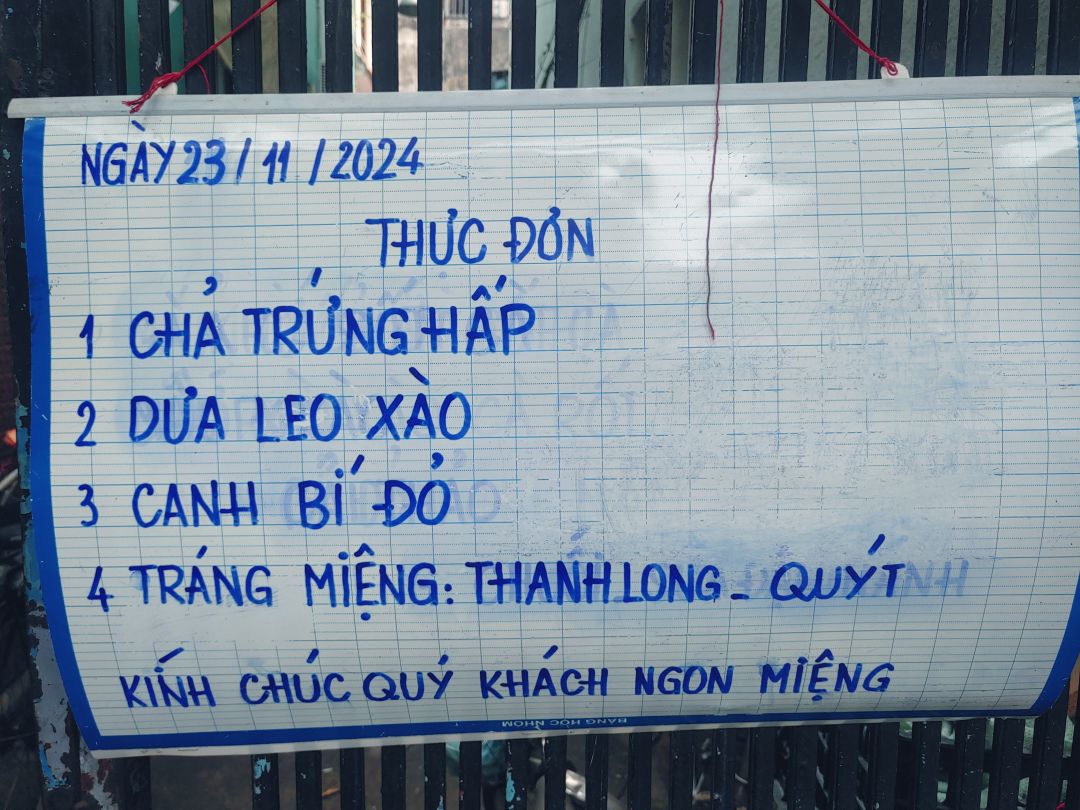 NGÀY 23/11/2024
THỰC ĐƠN
1 CHẢ TRỨNG HẤP
2 DƯA LEO XÀO
3 CANH BÍ ĐỎ
4 TRÁNG MIỆNG: THANH LONG - QUÝT
KÍNH CHÚC QUÝ KHÁCH NGON MIỆNG
BẢNG HỌC NHÓM